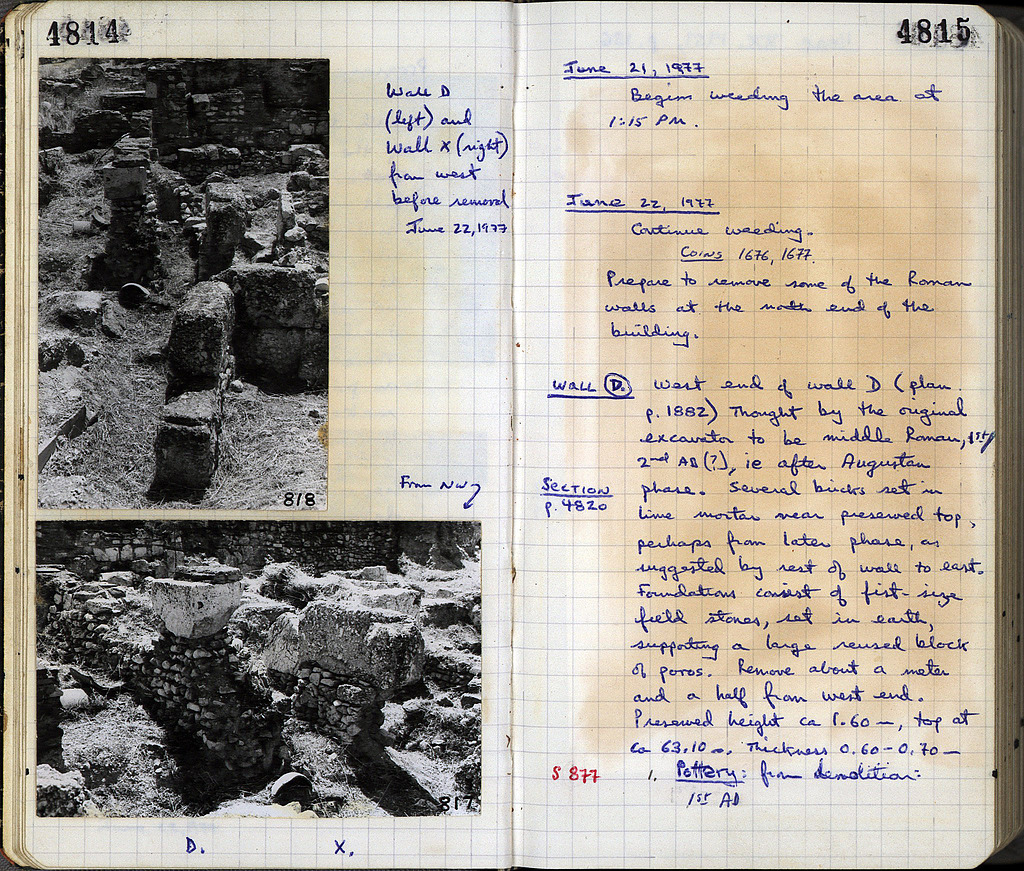 4814
Wall D
(left) and
Wall X (right)
from west
before removal
June 22, 1977
818
From NW
817
D. X.
4815
June 21, 1977
Begin weeding the area at
1:15 PM.
June 22, 1977
Continue weeding.
Coins 1676, 1677.
Prepare to remove some of the Roman
walls at the north end of the
building.
Wall D. West end of wall D (plan
p. 1882) Thought by the original
excavator to be middle Roman, 1st/
2nd AD (?), ie after Augustan
Section phase. Several bricks set in
p. 4820 lime mortar near preserved top,
perhaps from later phase, as
suggested by rest of wall to east.
Foundations consist of fist-size
field stones, set in earth,
supporting a large reused block
of poros. Remove about a meter
and a half from west end.
Preserved height ca 1.60 m, top at
ca 63.10 m. Thickness 0.60-0.70 m
S 877 1. Pottery: from demolition:
1st AD